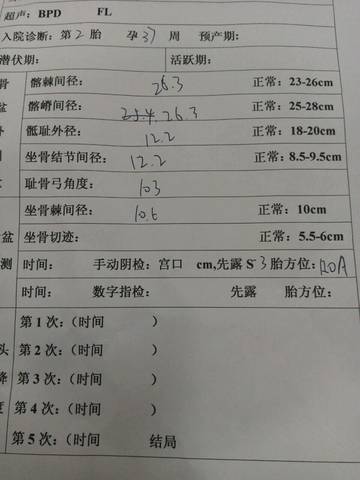 超声：BPD FL
入院诊断：第2胎 孕37周 预产期：
潜伏期： 活跃期：
骨 髂棘间径： 26.3 正常：23-26cm
盆 髂嵴间径： 26.3 正常：25-28cm
外 骶耻外径： 12.2 正常：18-20cm
坐骨结节间径： 12.2 正常：8.5-9.5cm
耻骨弓角度： 103
坐骨棘间径： 10.6 正常：10cm
盆 坐骨切迹： 正常：5.5-6cm
测 时间： 手动阴检：宫口 cm,先露 S-3 胎方位：ROA
时间： 数字指检： 先露 胎方位：
第1次：（时间 ）
头 第2次：（时间 ）
降 第3次：（时间 ）
度 第4次：（时间 ）
第5次：（时间 结局